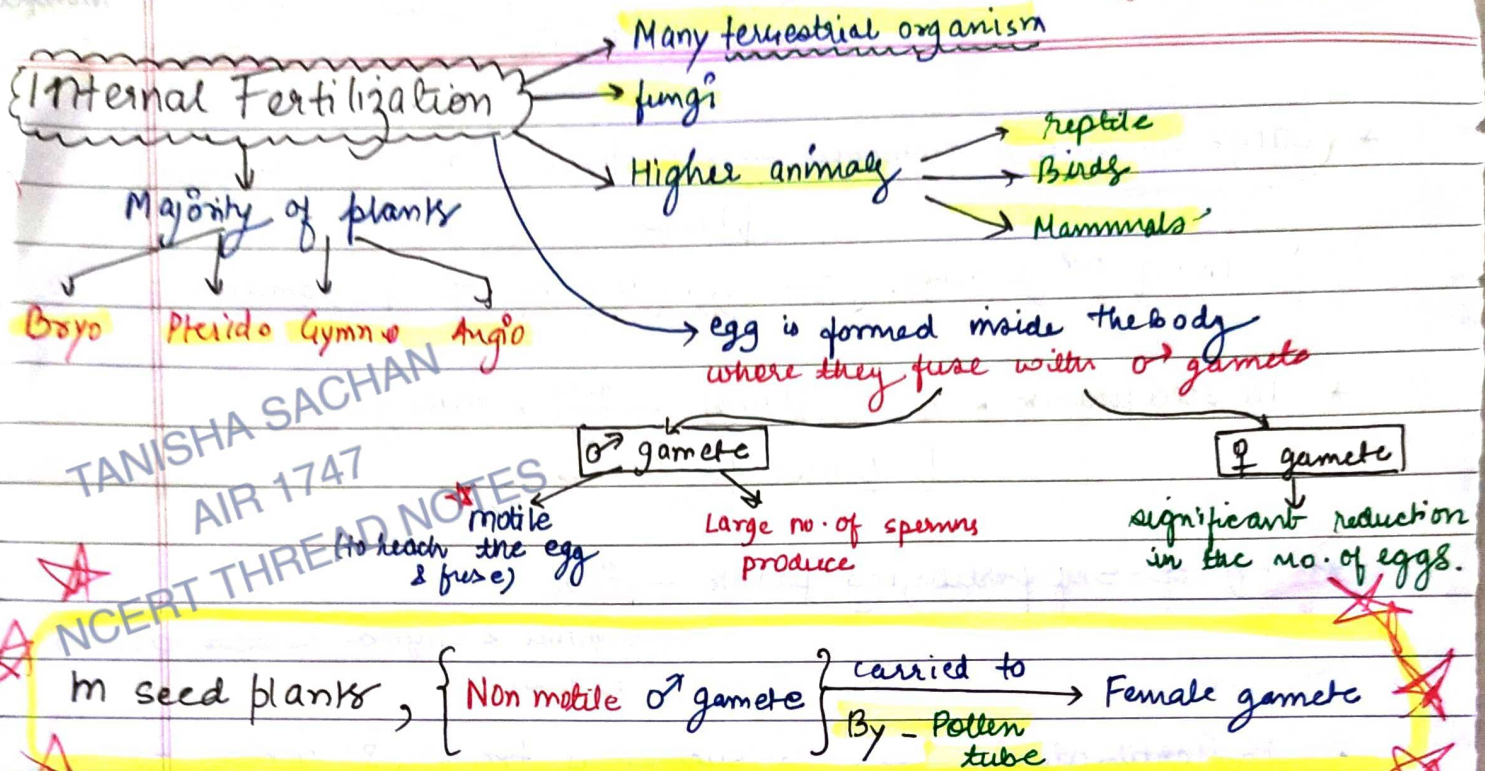 Many terrestrial organism
Internal Fertilization
fungi
Higher animals
reptile
Birds
Mammals
Majority of plants
Bryo Pterido Gymno Angio
egg is formed inside the body
where they fuse with ♂ gamete
♂ gamete
♀ gamete
motile
(to reach the egg
& fuse)
Large no. of sperms
produce
significant reduction
in the no. of eggs.
TANISHA SACHAN
AIR 1747
NCERT THREAD NOTES
In seed plants, { Non motile ♂ gamete } carried to
By - Pollen
tube
Female gamete